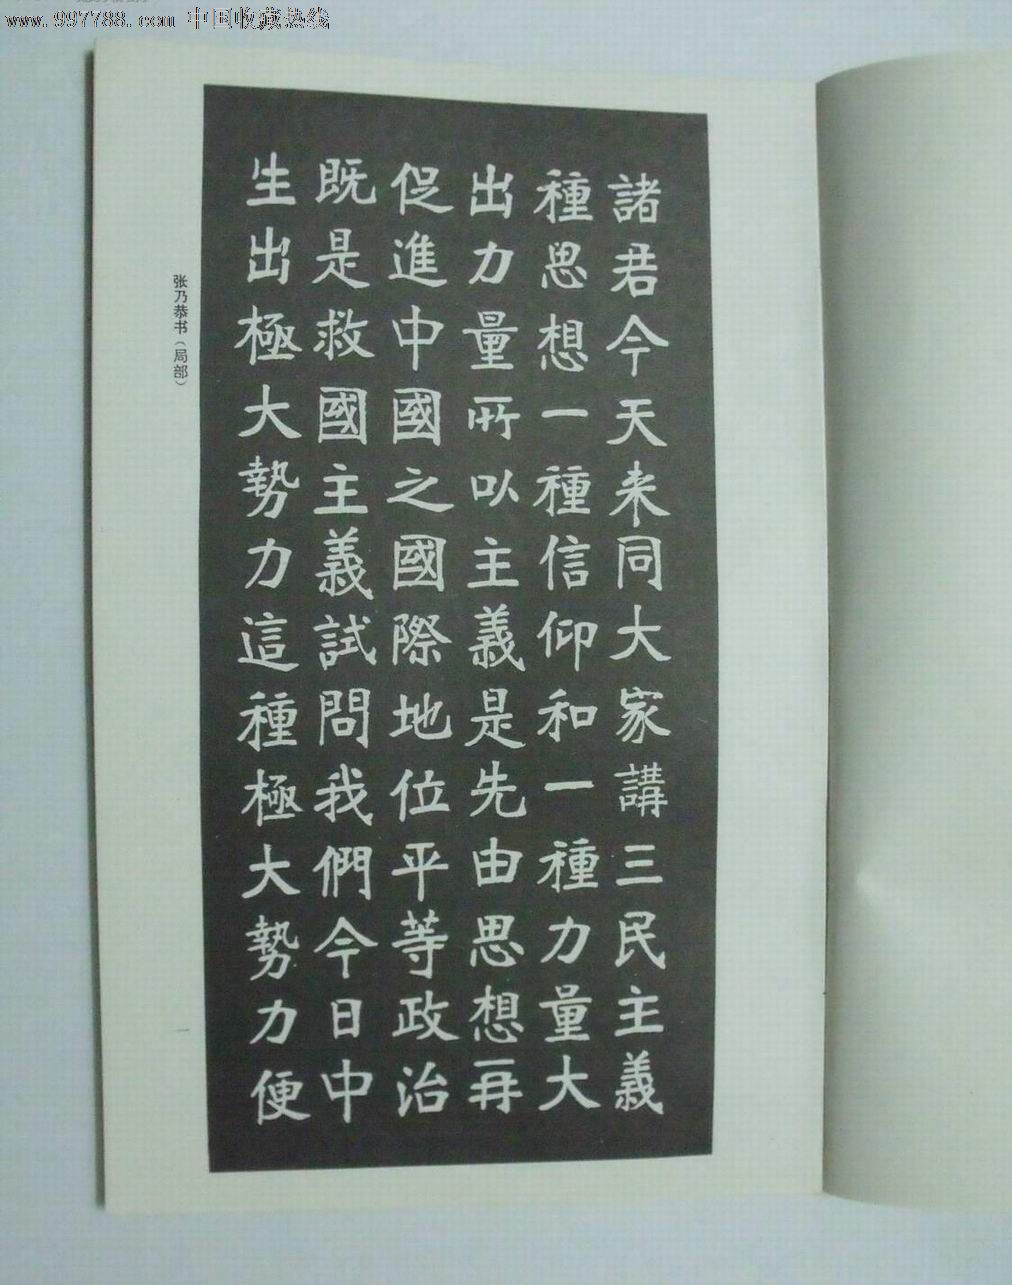 www.997788.com 中国收藏热线
諸君今天来同大家講三民主義
種思想一種信仰和一種力量大
出力量所以主義是先由思想再
促進中國之國際地位平等政治
既是救國主義試問我們今日中
生出極大勢力這種極大勢力便
张乃恭书（局部）
一